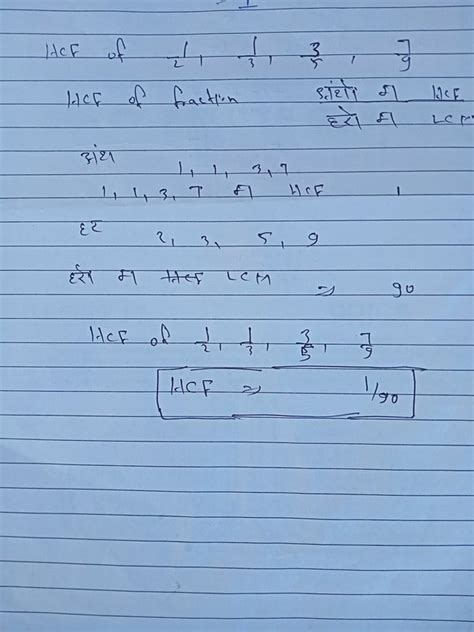 HCF of 1/2, 1/3, 3/5, 7/9
HCF of fraction अंशो का HCF
हरो का LCM
अंश
1, 1, 3, 7
1, 1, 3, 7 का HCF 1
हर
2, 3, 5, 9
हरो का HCF LCM ⇒ 90
HCF of 1/2, 1/3, 3/5, 7/9
HCF ⇒ 1/90